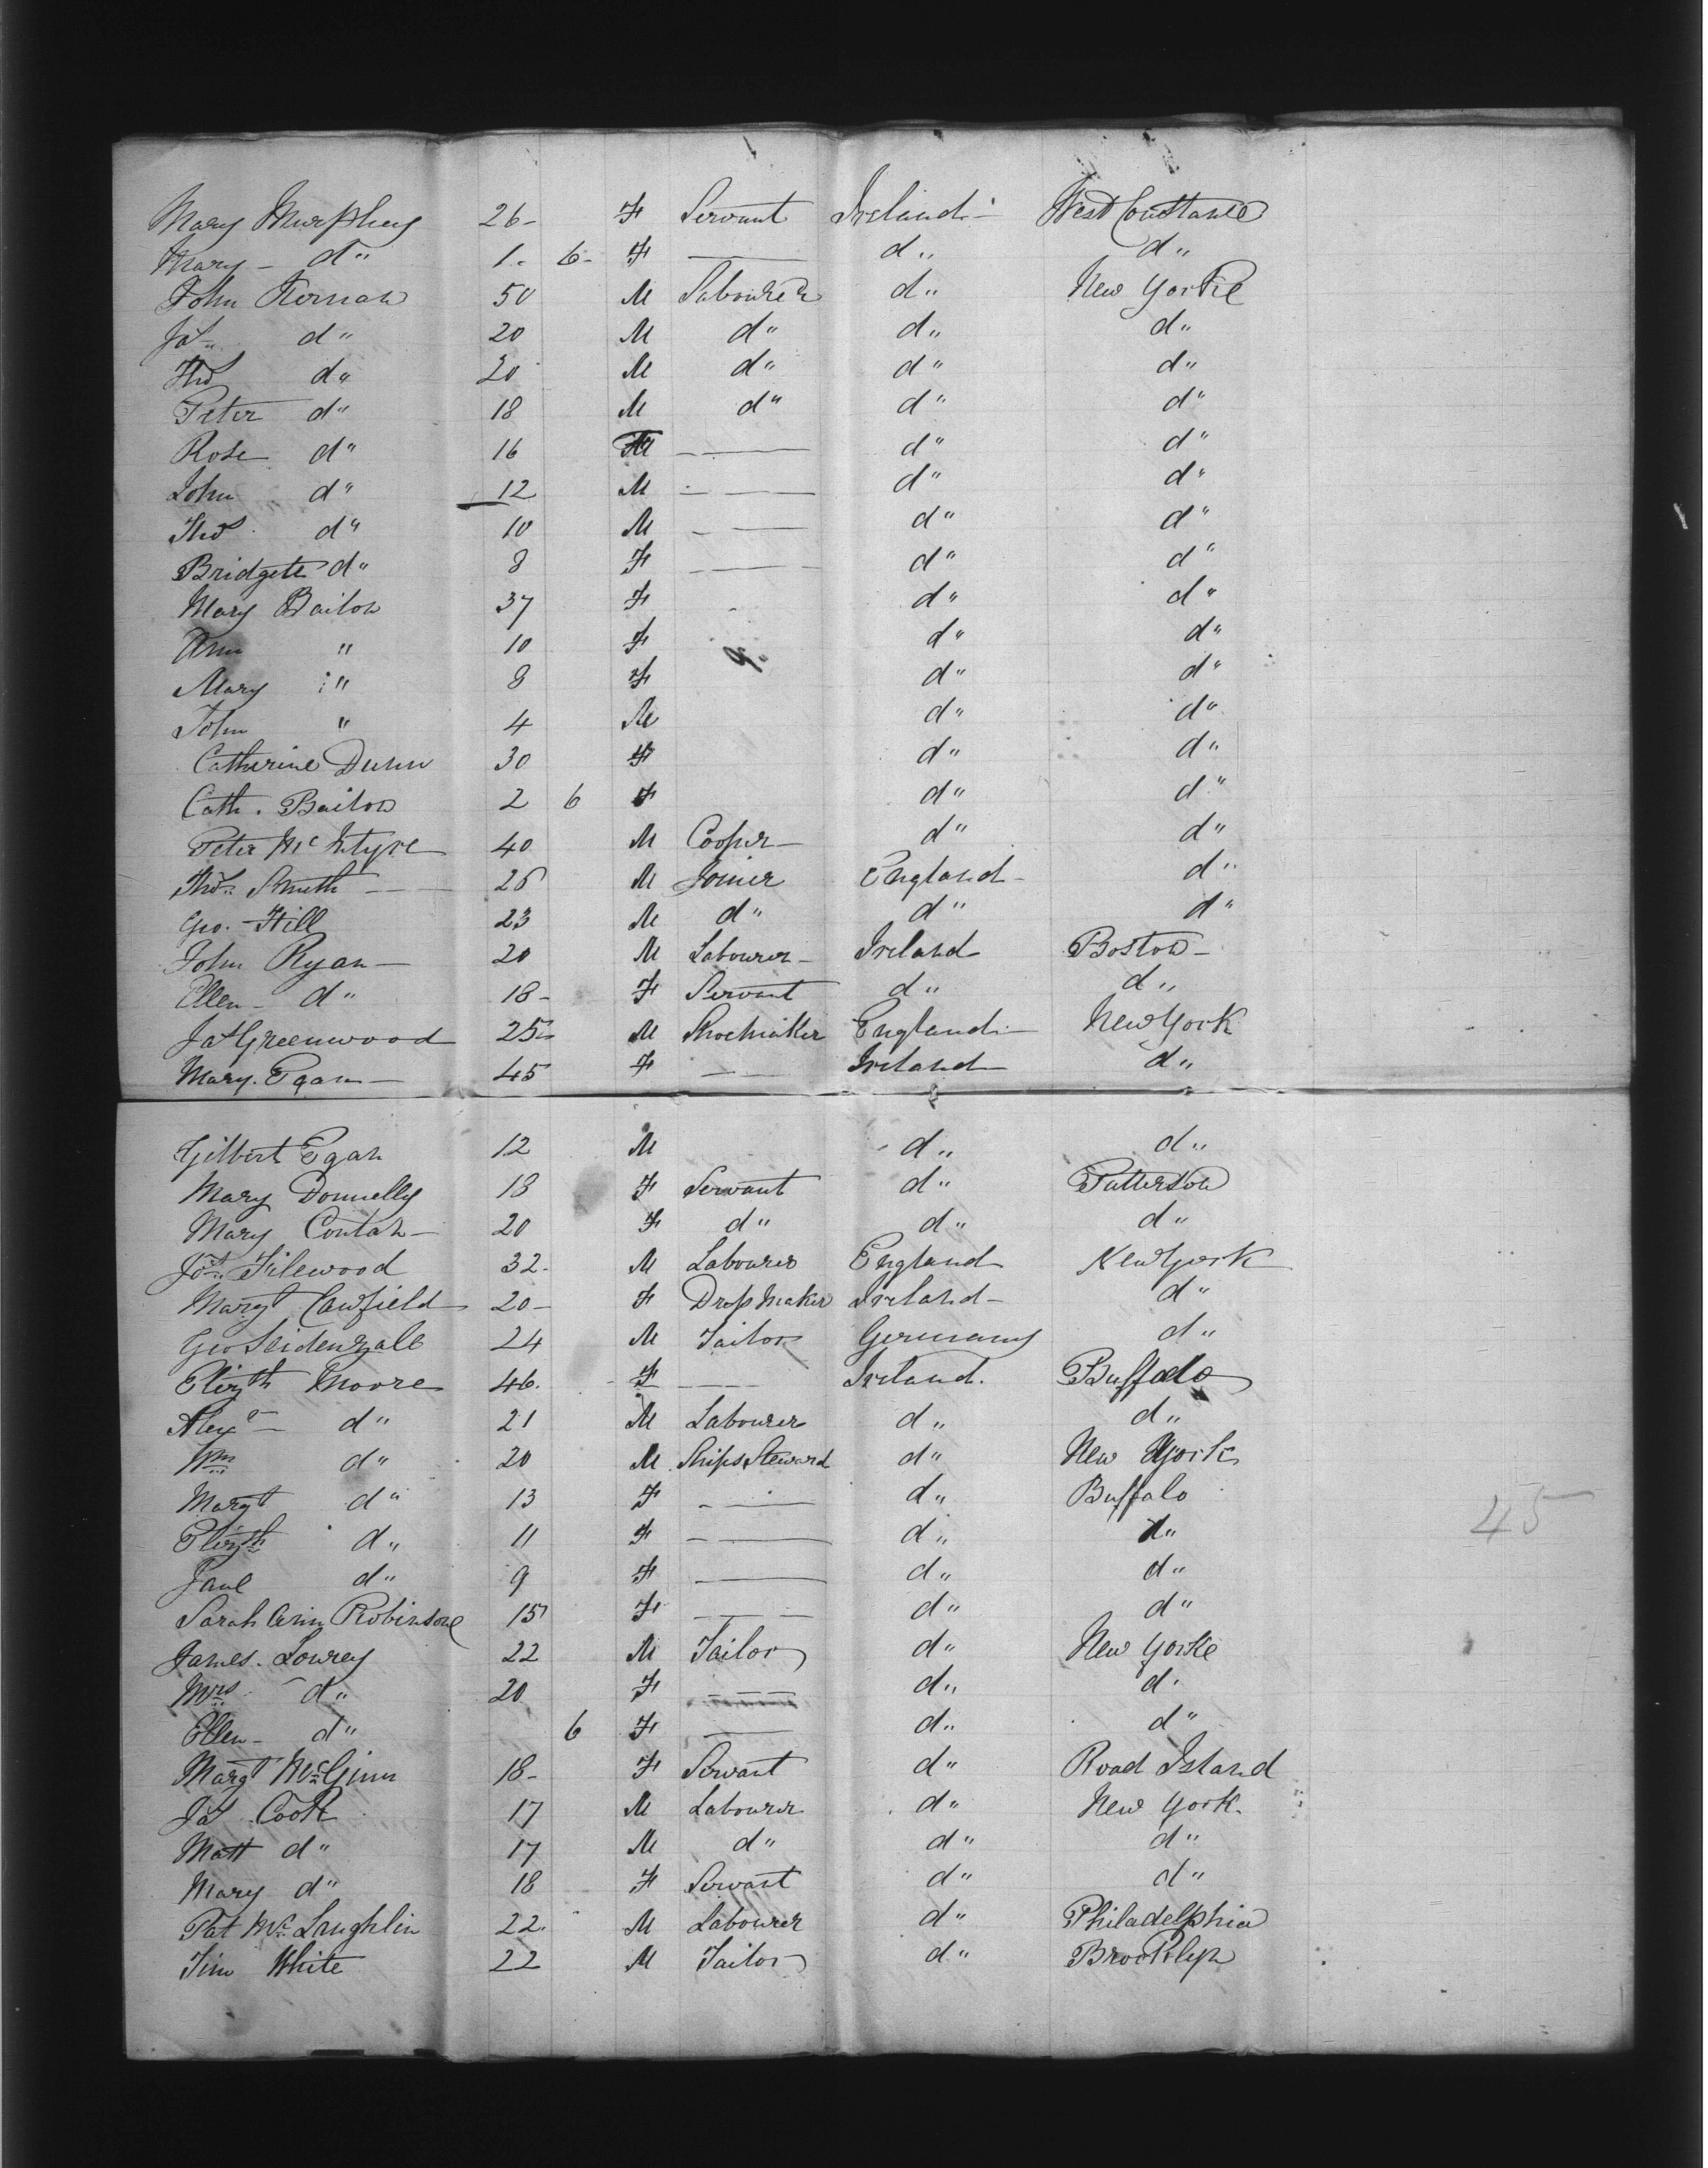 Mary Murphey 26 F Servant Ireland West
Mary d" 1 6 F d" d"
John Kernan 50 M Labourer d" New Yorke
Jas d" 20 M d" d" d"
Thos d" 20 M d" d" d"
Peter d" 18 M d" d" d"
Rose d" 16 F d" d"
John d" 12 M d" d"
Thos d" 10 M d" d"
Bridgett d" 8 F d" d"
Mary Bailon 37 F d" d"
Ann " 10 F d" d"
Mary " 8 F d" d"
John " 4 M d" d"
Catherine Dunn 30 F d" d"
Cath. Bailon 2 6 F d" d"
Peter McIntyre 40 M Cooper d" d"
Thos Smith 26 M Joiner England d"
Geo. Hill 23 M d" d" d"
John Ryan 20 M Labourer Ireland Boston
Ellen d" 18 F Servant d" d"
Jas Greenwood 25 M Shoemaker England New York
Mary Egan 45 F Ireland d"
Gilbert Egan 12 M d" d"
Mary Donnelly 18 F Servant d" Patterson
Mary Contah 20 F d" d" d"
Filewood 32 M Labourer England New York
Margt Cawfield 20 F Dressmaker Ireland d"
Geo Seidenzale 24 M Tailor Germany d"
Elizth Moore 46 F Ireland Buffalo
Alexr d" 21 M Labourer d" d"
Wm d" 20 M Ships Steward d" New York
Margt d" 13 F d" Buffalo
Elizth d" 11 F d" d"
45
Jane d" 9 F d" d"
Sarah Ann Robinsone 15 F d" d"
James Lowrey 22 M Tailor d" New Yorke
Mrs d" 20 F d" d"
Ellen d" 6 F d" d"
Margt McGinn 18 F Servant d" Road Island
Jas Cook 17 M Labourer d" New York
Matt d" 17 M d" d" d"
Mary d" 18 F Servant d" d"
Pat McLaughlin 22 M Labourer d" Philadelphia
Tim White 22 M Tailor d" Brooklyn